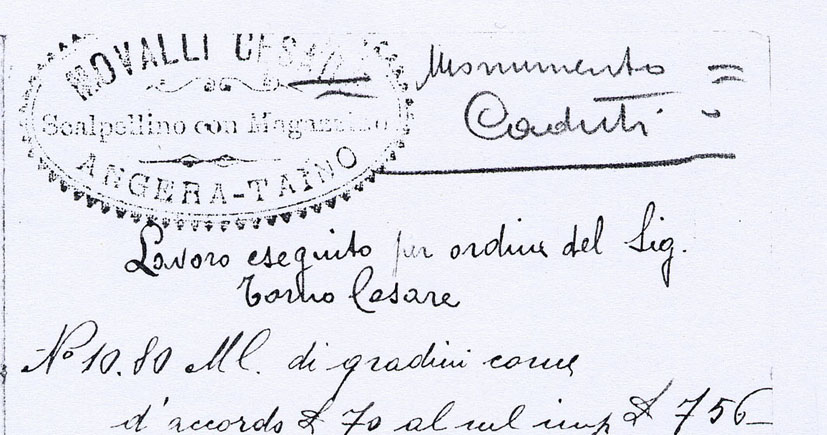 MOVALLI CESARE
Scalpellino con Magazzino
ANGERA-TAINO
Monumento =
Caduti -
Lavoro eseguito per ordine del Sig.
Torno Cesare
No 10.80 Ml. di gradini come
d'accordo £ 70 al ml imp £ 756-